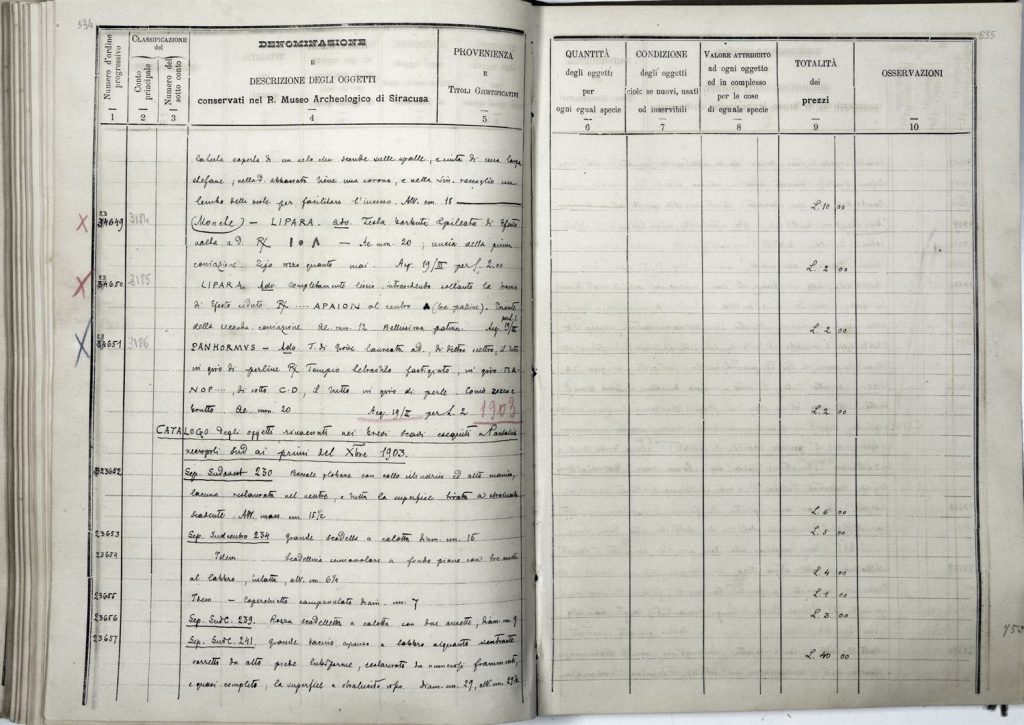 534
Numero d'ordine progressivo
CLASSIFICAZIONE del
Conto principale
Numero del sotto conto
DENOMINAZIONE
E
DESCRIZIONE DEGLI OGGETTI
conservati nel R. Museo Archeologico di Siracusa
PROVENIENZA
E
TITOLI GIUSTIFICATIVI
1 2 3 4 5
coperta di un velo che scende sulle spalle, e cinta di una larga
stefane, nella d. abbassata tiene una corona, e nella sin. raccoglie un
lembo della veste per facilitare l'incesso. Alt. cm. 18
34649 3184 (Monete) — LIPARA. Ado. Testa barbuta di Efesto
volta a d. — Ae. mm. 20; uncia della prima
coniazione. Acq. 19/II per £. 2.00
34650 3185 LIPARA. Ado. completamente liscio, soltanto la
di Efesto seduto APAION al centro
della seconda coniazione Ae. mm. 12. Bellissima patina. Acq. 19/II
34651 3186 PANHORMVS — Ado. T. di laureata a d., di dietro, il tutto
in giro di perline Tempio fastigiato, in giro ΠΑ-
ΝΟΡ, di sotto C.D, il tutto in giro di perle Conio rozzo e
brutto Ae. mm. 20 Acq. 19/II per L. 2 1903
CATALOGO degli oggetti rinvenuti nei brevi scavi eseguiti a
necropoli Sud ai primi del Xbre 1903.
23652 Sep. Sudovest 230 Boccale globare con collo cilindrico ed alto manico,
lacuna restaurata nel ventre, e tutta la superficie
scadente. Alt. mass. cm 15½
23653 Sep. Sudcentro 234 Grande scodella a calotta diam. cm. 16
23654 Idem Scodellina a fondo piano con
al labbro, intatta, alt. cm. 6½
23655 Idem — Coperchietto campanulato diam. cm. 7
23656 Sep. SudC. 239. Rozza scodelletta a calotta con due ansette, diam. cm. 9
23657 Sep. SudC. 241. Grande bacino a labbro alquanto rientrante
sorretto da alto piede tubiforme, restaurato da numerosi frammenti,
e quasi completo, la superficie a diam. cm. 29, alt. cm. 29½
535
QUANTITÀ
degli oggetti
per
ogni egual specie
CONDIZIONE
degli oggetti
cioè: se nuovi, usati
od inservibili
VALORE ATTRIBUITO
ad ogni oggetto
ed in complesso
per le cose
di eguale specie
TOTALITÀ
dei
prezzi
OSSERVAZIONI
6 7 8 9 10
L. 10 00
L. 2 00
L. 2 00
L. 2 00
L. 6 00
L. 5 00
L. 4 00
L. 1 00
L. 3 00
L. 40 00